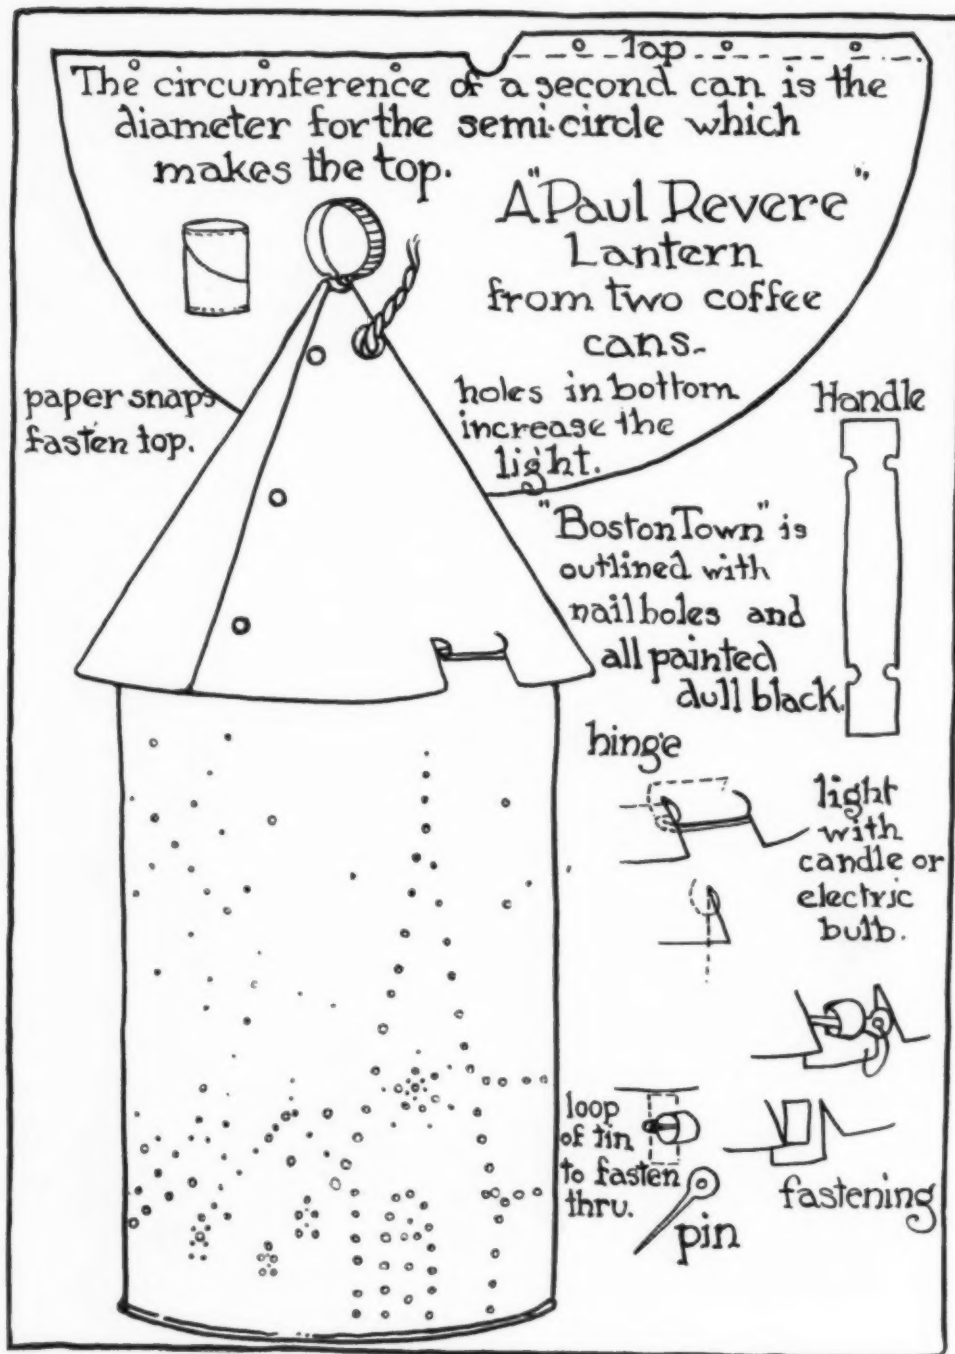 lap
The circumference of a second can is the
diameter for the semi-circle which
makes the top.
A "Paul Revere"
Lantern
from two coffee
cans.
paper snaps
fasten top.
holes in bottom
increase the
light.
Handle
"Boston Town" is
outlined with
nail holes and
all painted
dull black.
hinge
light
with
candle or
electric
bulb.
loop
of tin
to fasten
thru.
pin
fastening